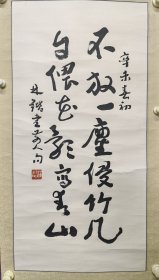 辛未春初
不放一塵侵竹几
自偎花影寫山
林鍇書人句